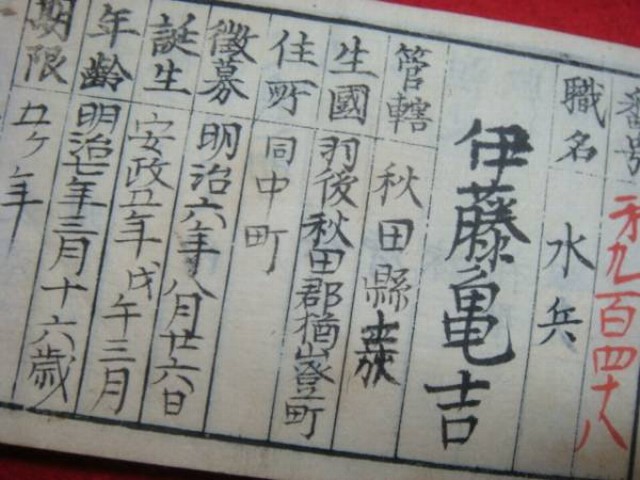 番号 第九百四十八
職名 水兵
伊藤亀吉
管轄 秋田縣士族
生國 羽後秋田郡楢山登町
住所 同中町
徴募 明治六年八月廿六日
誕生 安政五年戊午三月
年齢 明治七年三月十六歳
期限 五ヶ年